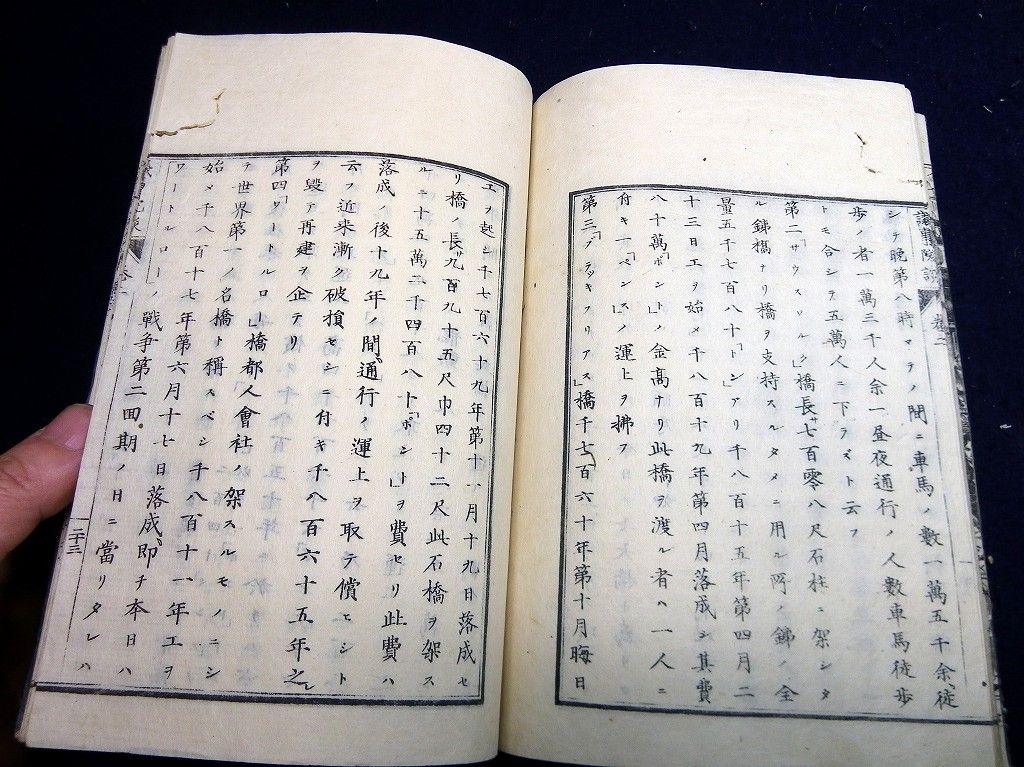 シテ晩第八時マテノ間ニ車馬ノ數一萬五千余徒
歩ノ者一萬三千人余一昼夜通行ノ人數車馬徒歩
トモ合シテ五萬人ニ下ラズト云フ
第二「サウスワルク」橋長サ七百零八尺石柱ニ架シタ
ル銕橋ナリ橋ヲ支持スルタメニ用ル所ノ銕ノ全
量五千七百八十「トン」アリ千八百十五年第四月二
十三日工ヲ始メ千八百十九年第四月落成シ其費
八十萬「ポント」ノ金高ナリ此橋ヲ渡ル者ハ一人ニ
付キ一「ペンス」ノ運上ヲ拂フ
第三「ブラッキフリアス」橋千七百六十年第十月晦日
工ヲ起シ千七百六十九年第十一月十九日落成セ
リ橋ノ長サ九百九十五尺巾四十二尺此石橋ヲ架ス
ルニ十五萬二千四百八十「ポント」ヲ費セリ此費ハ
落成ノ後十九年ノ間通行ノ運上ヲ取テ償ヒシト
云フ近来漸ク破損セシニ付キ千八百六十五年之
ヲ毀ア再建ヲ企テリ
第四「ワートルロー」橋都人會社ノ架スルモノニシ
テ世界第一ノ名橋ト稱スベシ千八百十一年工ヲ
始メ千八百十七年第六月十七日落成即チ本日ハ
ワートルローノ戦争第二回期ノ日ニ當リタレハ
二十三